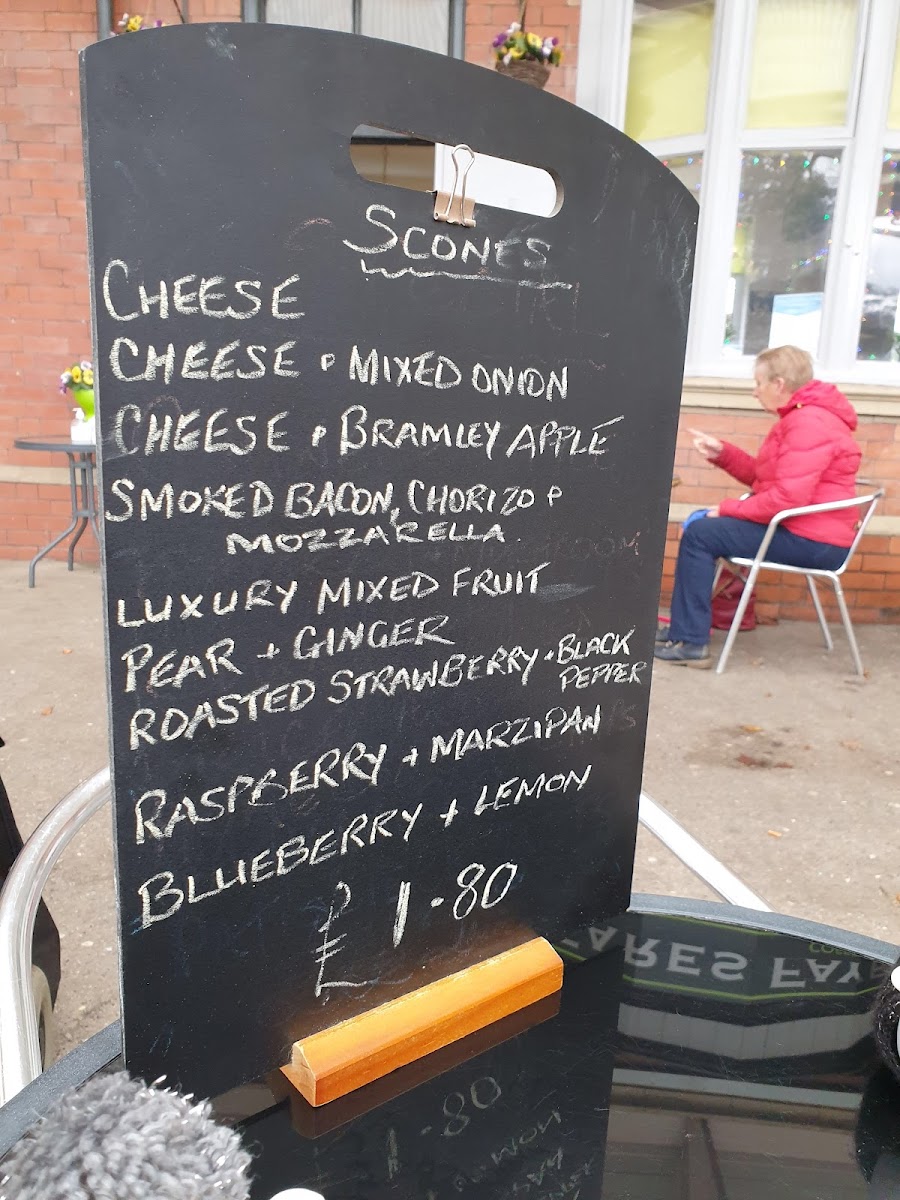 SCONES
CHEESE
CHEESE & MIXED ONION
CHEESE & BRAMLEY APPLE
SMOKED BACON, CHORIZO &
MOZZARELLA.
LUXURY MIXED FRUIT
PEAR + GINGER
ROASTED STRAWBERRY + BLACK
PEPPER
RASPBERRY + MARZIPAN
BLUEBERRY + LEMON
£ 1.80